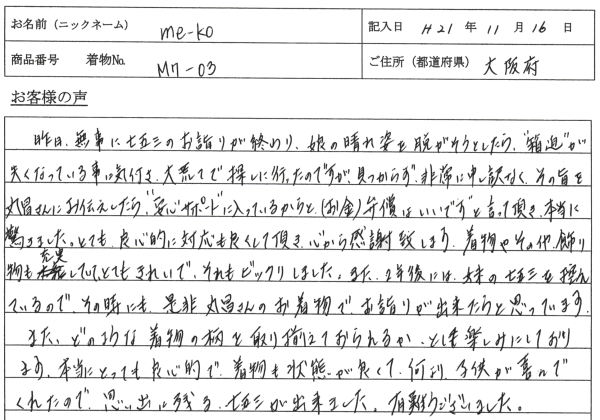 お名前（ニックネーム） me-ko 記入日 H21 年 11 月 16 日
商品番号 着物No. M7-03 ご住所（都道府県） 大阪府
お客様の声
昨日、無事に七五三のお詣りが終わり、娘の晴れ姿を脱がそうとしたら、"箱迫"が
失くなっている事に気付き、大荒てで探しに行ったのですが、見つからず、非常に申し訳なく、その旨を
丸昌さんにお伝えしたら、"安心サポート"に入っているからと、(お金)弁償はいいです"と言って頂き、本当に
驚きました。とても、良心的に対応も良くして頂き、心から感謝致します。着物やその他、飾り
物も充実していて、とてもきれいで、それもビックリしました。また、2年後には、次の七五三を控え
ているので、その時にも、是非丸昌さんのお着物で、お詣りが出来たらと思っています。
また、どのような着物の柄を取り揃えておられるか、とても楽しみにしており
ます。本当にとっても良心的で、着物も状態が良くて、何より、子供が喜んで
くれたので、思い出に残る、七五三が出来ました。有難うございました。